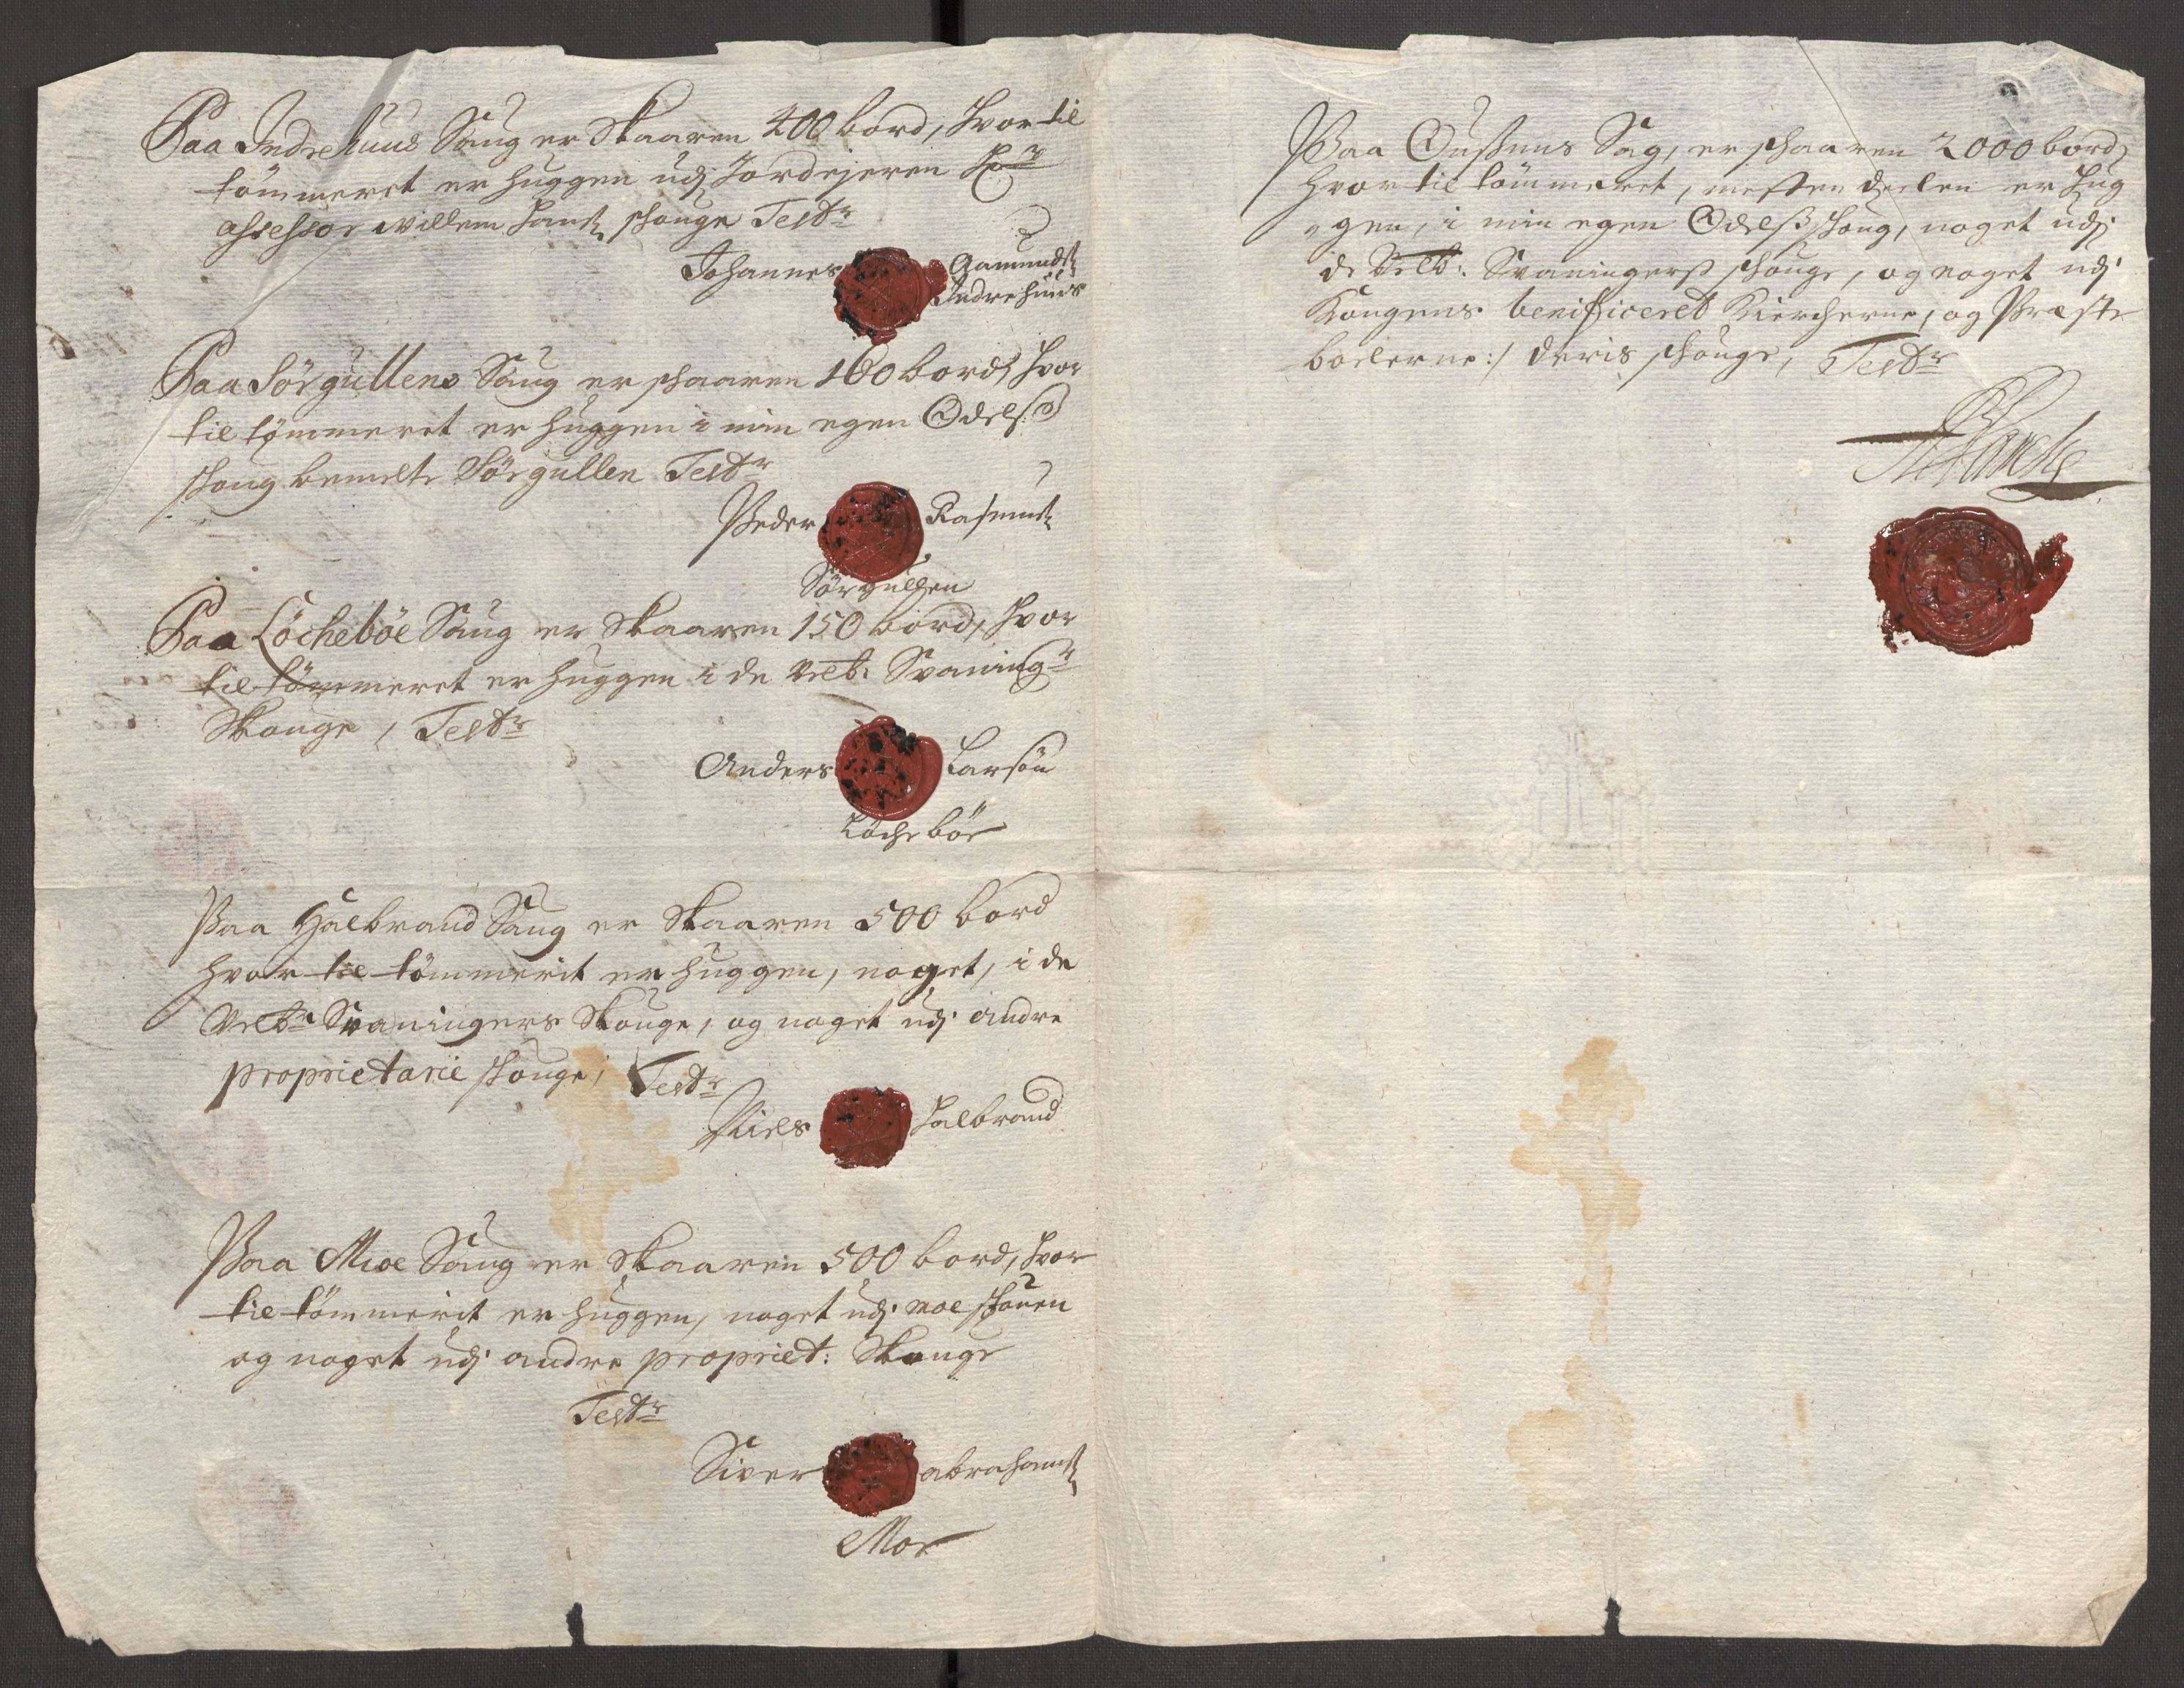 Paa Indrehuus Saug er Skaaren 400 bord, hvor til
tömmeret er huggen udj Jordejeren Hr
assessor willem Hans skouge Testr
Johannes Aamunds
Indrehuus
Paa Sörgullens Saug er skaaren 160 bord, hvor
til tömmeret er huggen i min egen Odelss
skoug bemelte Sörgullen Testr
Peder Rasmus
Sörgullen
Paa Löcheböe Saug er Skaaren 150 bord, hvor
til tömmeret er huggen i de Velb: Svaningr
Skouge, Testr
Anders Larsön
Löcheböe
Paa Halbrand Saug er Skaaren 500 bord
hvor til tömmerit er huggen, noget, i de
Velbr Svaningers Skouge, og noget udj andre
proprietarie skouge, Testr
Niels Halbrand
Paa Moe Saug er Skaaren 500 bord, hvor
til tömmerit er huggen, noget udj moe skouen
og noget udj andre propriet: Skouge
Testr
Siver abrahams
Moe
Paa Sag, er skaaren 2000 bord,
hvor til tömmeret, mesten deelen er hug
gen, i min egen Odelss skoug, noget udj
de Velb: Svaningerss skouge, og noget udj
Kongens benificeret Kircherne, og Præste
boelerne:/ deris skouge, Testr